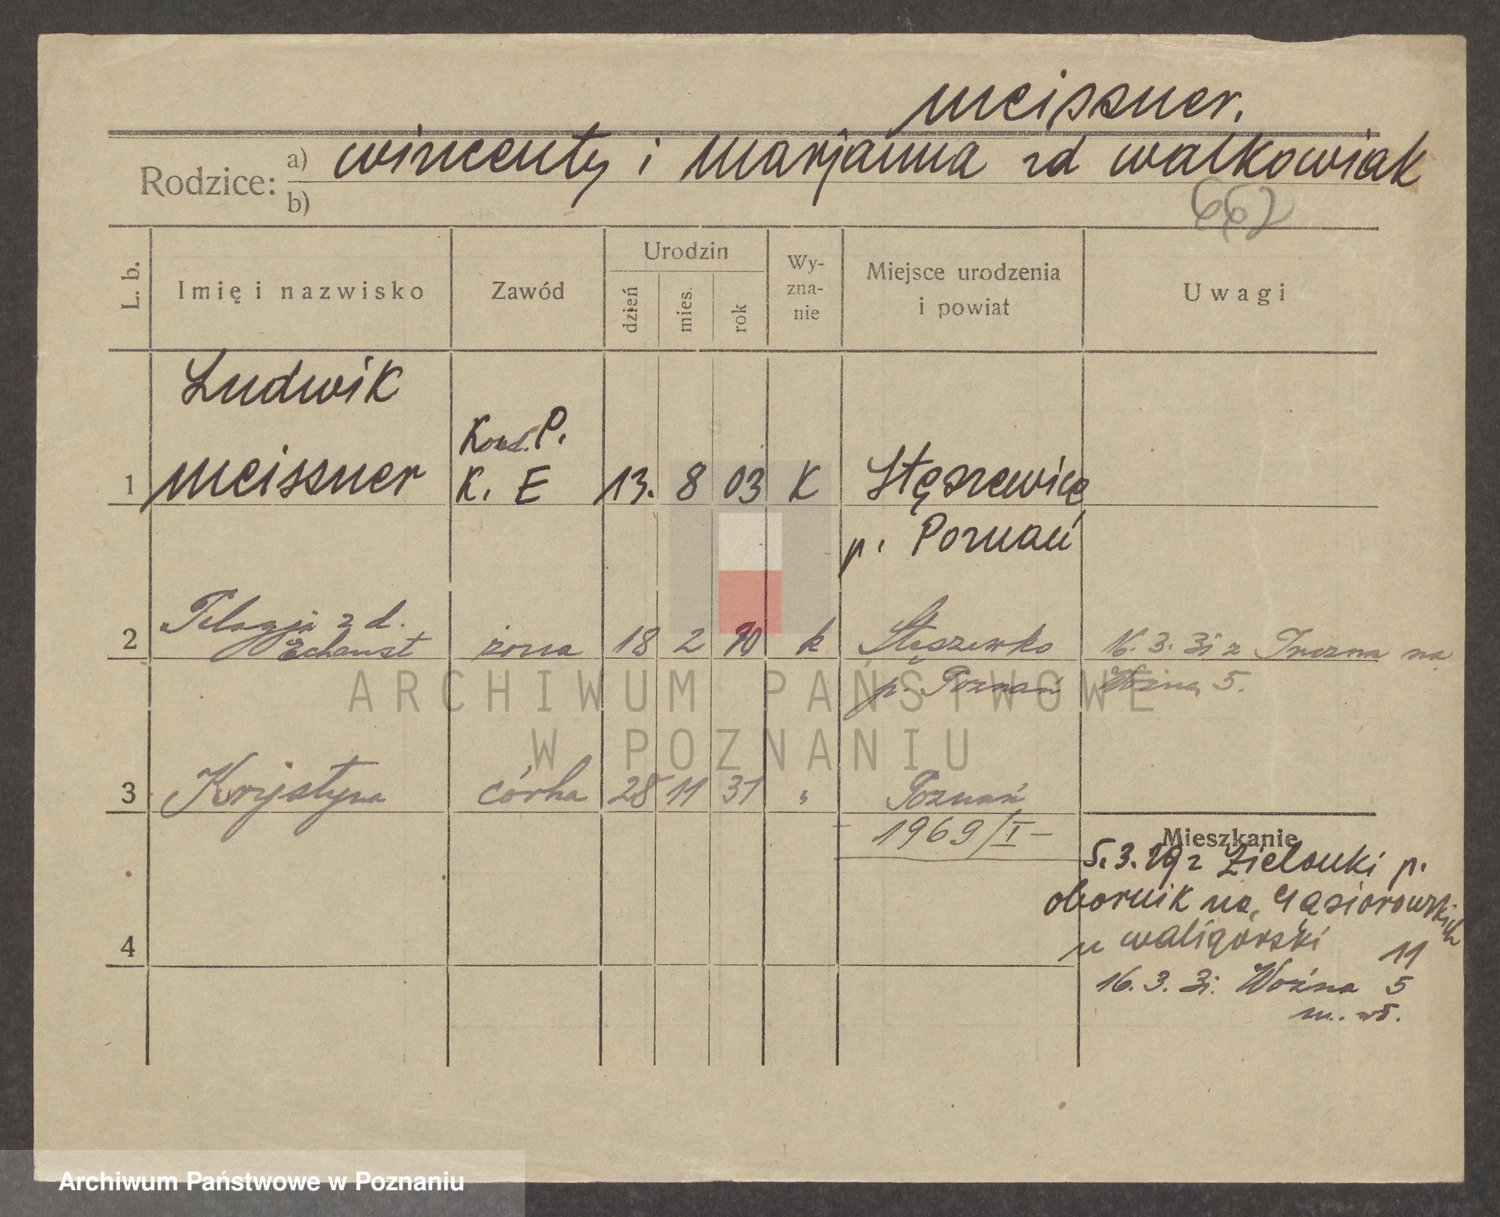 Meissner.
Rodzice: a) Wincenty i Marjanna zd Walkowiak
b)
662
L. b.
Imię i nazwisko
Zawód
Urodzin
dzień
mies.
rok
Wy-
zna-
nie
Miejsce urodzenia
i powiat
Uwagi
Ludwik
Kond. P.
1 Meissner K. E 13. 8 03 K Stęszewice
p. Poznań
Pelagja z d.
2 żona 18 2 k Stęszewko 16. 3. 31 z na
p. Poznań Woźna 5.
3 Krystyna córka 28 11 31 " Poznań
1969/I –
Mieszkanie
5.3.29 z Zielonki p.
Obornik na Gąsiorowskich
u Waligórski 11
4
16. 3. 31. Woźna 5
m. wł.
ARCHIWUM PAŃSTWOWE
W POZNANIU
Archiwum Państwowe w Poznaniu